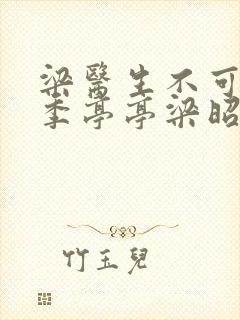 梁醫生不可
季亭亭梁昭
竹玉兒